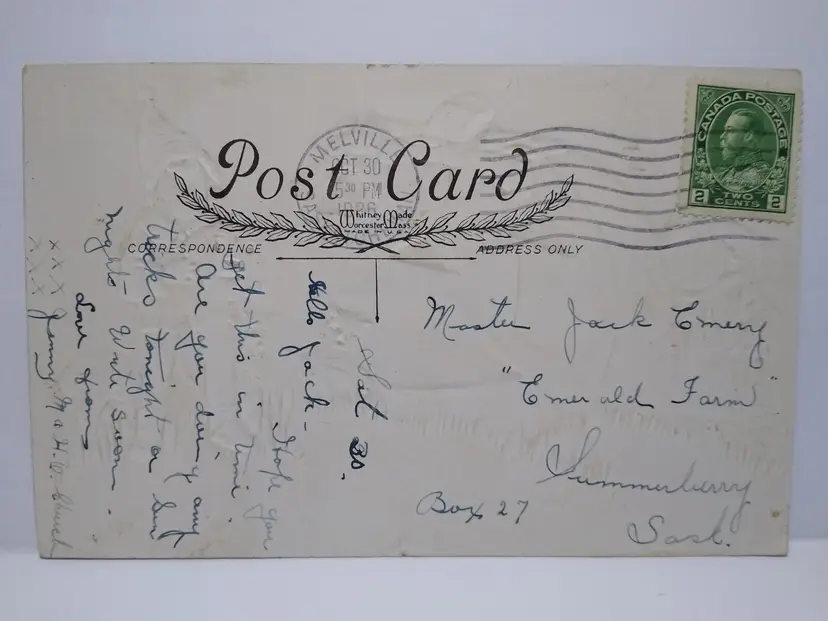 MELVILLE
OCT 30
5 30 PM
1926
SASK
CANADA POSTAGE
2 TWO CENTS 2
Post Card
Whitney Made
Worcester Mass
MADE IN U.S.A.
CORRESPONDENCE
ADDRESS ONLY
Sat 30.
Hello Jack -
Hope you
get this in time.
Are you doing any
tricks tonight or Sun
night - Write soon.
Love from
Jenny
Church
x x x
x x x
Master Jack Emery
"Emerald Farm"
Summerberry
Box 27
Sask.